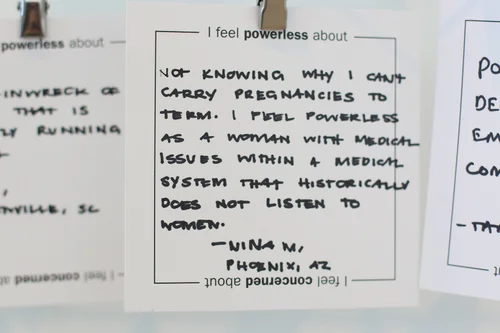 powerless about
INWRECK OF
THAT IS
LY RUNNING
NVILLE, SC
I feel concerned about
I feel powerless about
NOT KNOWING WHY I CAN'T
CARRY PREGNANCIES TO
TERM. I FEEL POWERLESS
AS A WOMAN WITH MEDICAL
ISSUES WITHIN A MEDICAL
SYSTEM THAT HISTORICALLY
DOES NOT LISTEN TO
WOMEN.
—NINA M,
PHOENIX, AZ
I feel concerned about
PO
DE
EM
COM
- TA